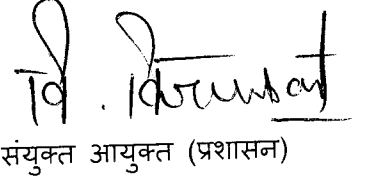 वि.
संयुक्त आयुक्त (प्रशासन)